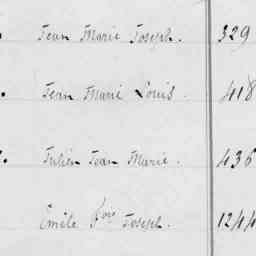 Jean Marie Joseph. 329
Jean Marie Louis. 418
Julien Jean Marie. 436
Émile Fois Joseph. 1244